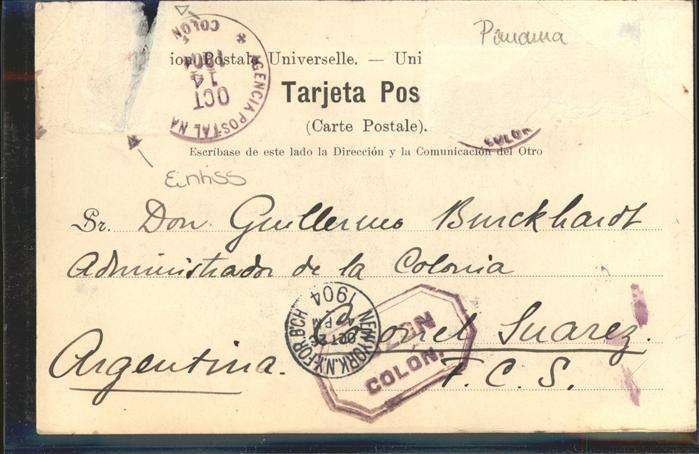 Panama
COLON
AGENCIA POSTAL NA
OCT
14
ion Postale Universelle. — Uni
Tarjeta Pos
(Carte Postale).
COLON
Escríbase de este lado la Dirección y la Comunicación del Otro
Sr. Don Guillermo Burckhardt
Administrador de la Colonia
Coronel Suarez.
Argentina. F. C. S.
NEW YORK, N.Y. FOR. B'CH
1904
COLON.